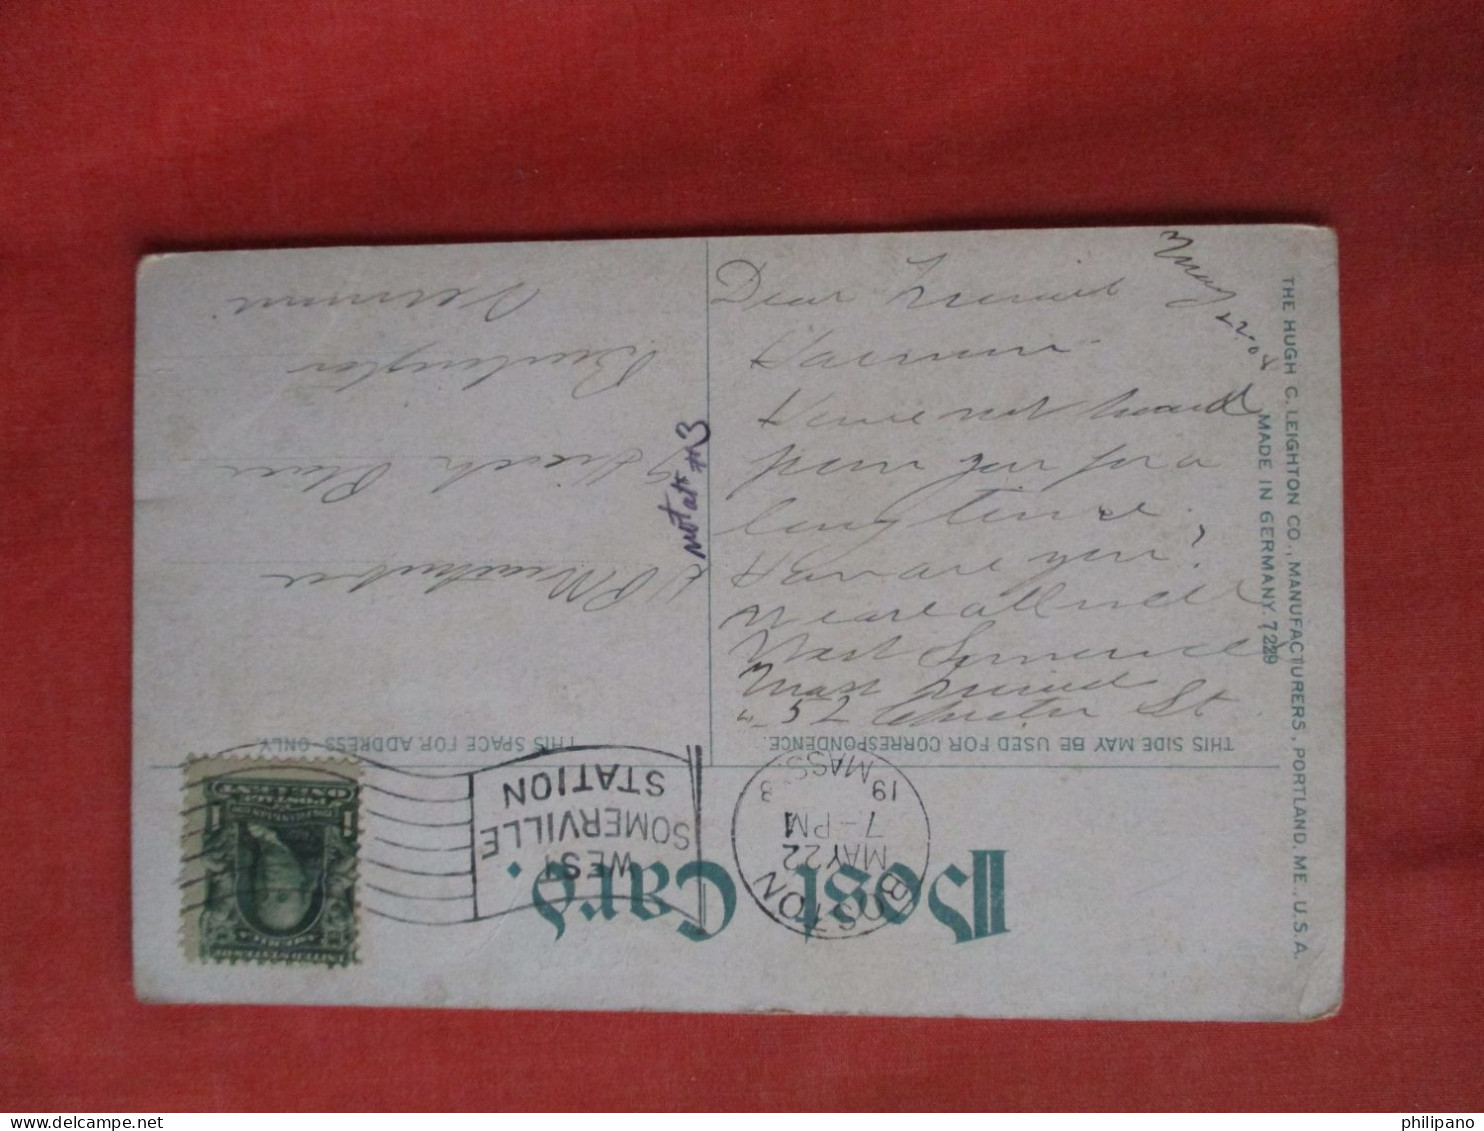 Post Card.
THIS SPACE FOR ADDRESS ONLY.
THIS SIDE MAY BE USED FOR CORRESPONDENCE.
BOSTON
MAY 22
7-PM
19 8
MASS.
WEST
SOMERVILLE
STATION
ONE CENT
1 1
May 22.08
Dear
Have not heard
from you for a
long time.
How are you?
We are all well
West
Mass
52 Chester St
not at #3
Place
Burlington
THE HUGH C. LEIGHTON CO., MANUFACTURERS, PORTLAND, ME., U.S.A.
MADE IN GERMANY. 7229
philipano